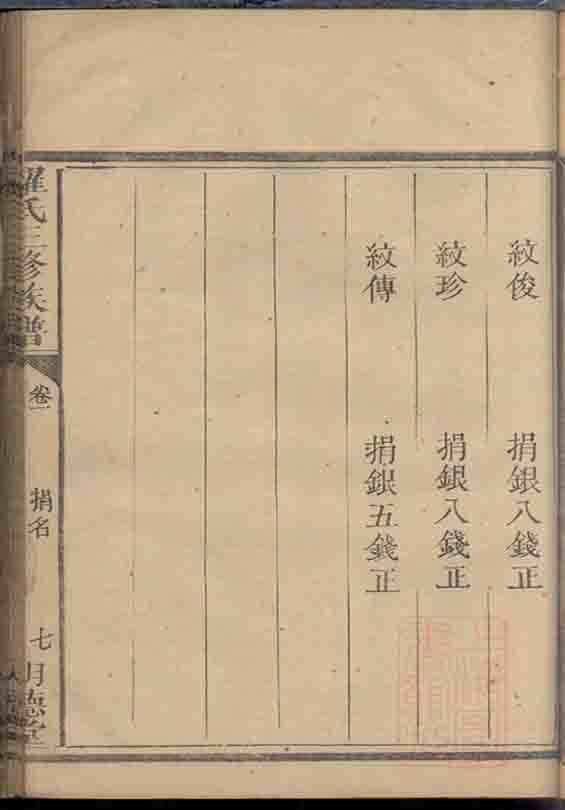 紋俊 捐銀八錢正
紋珍 捐銀八錢正
紋傳 捐銀五錢正
羅氏三修族譜
卷一
捐名
七
明德堂